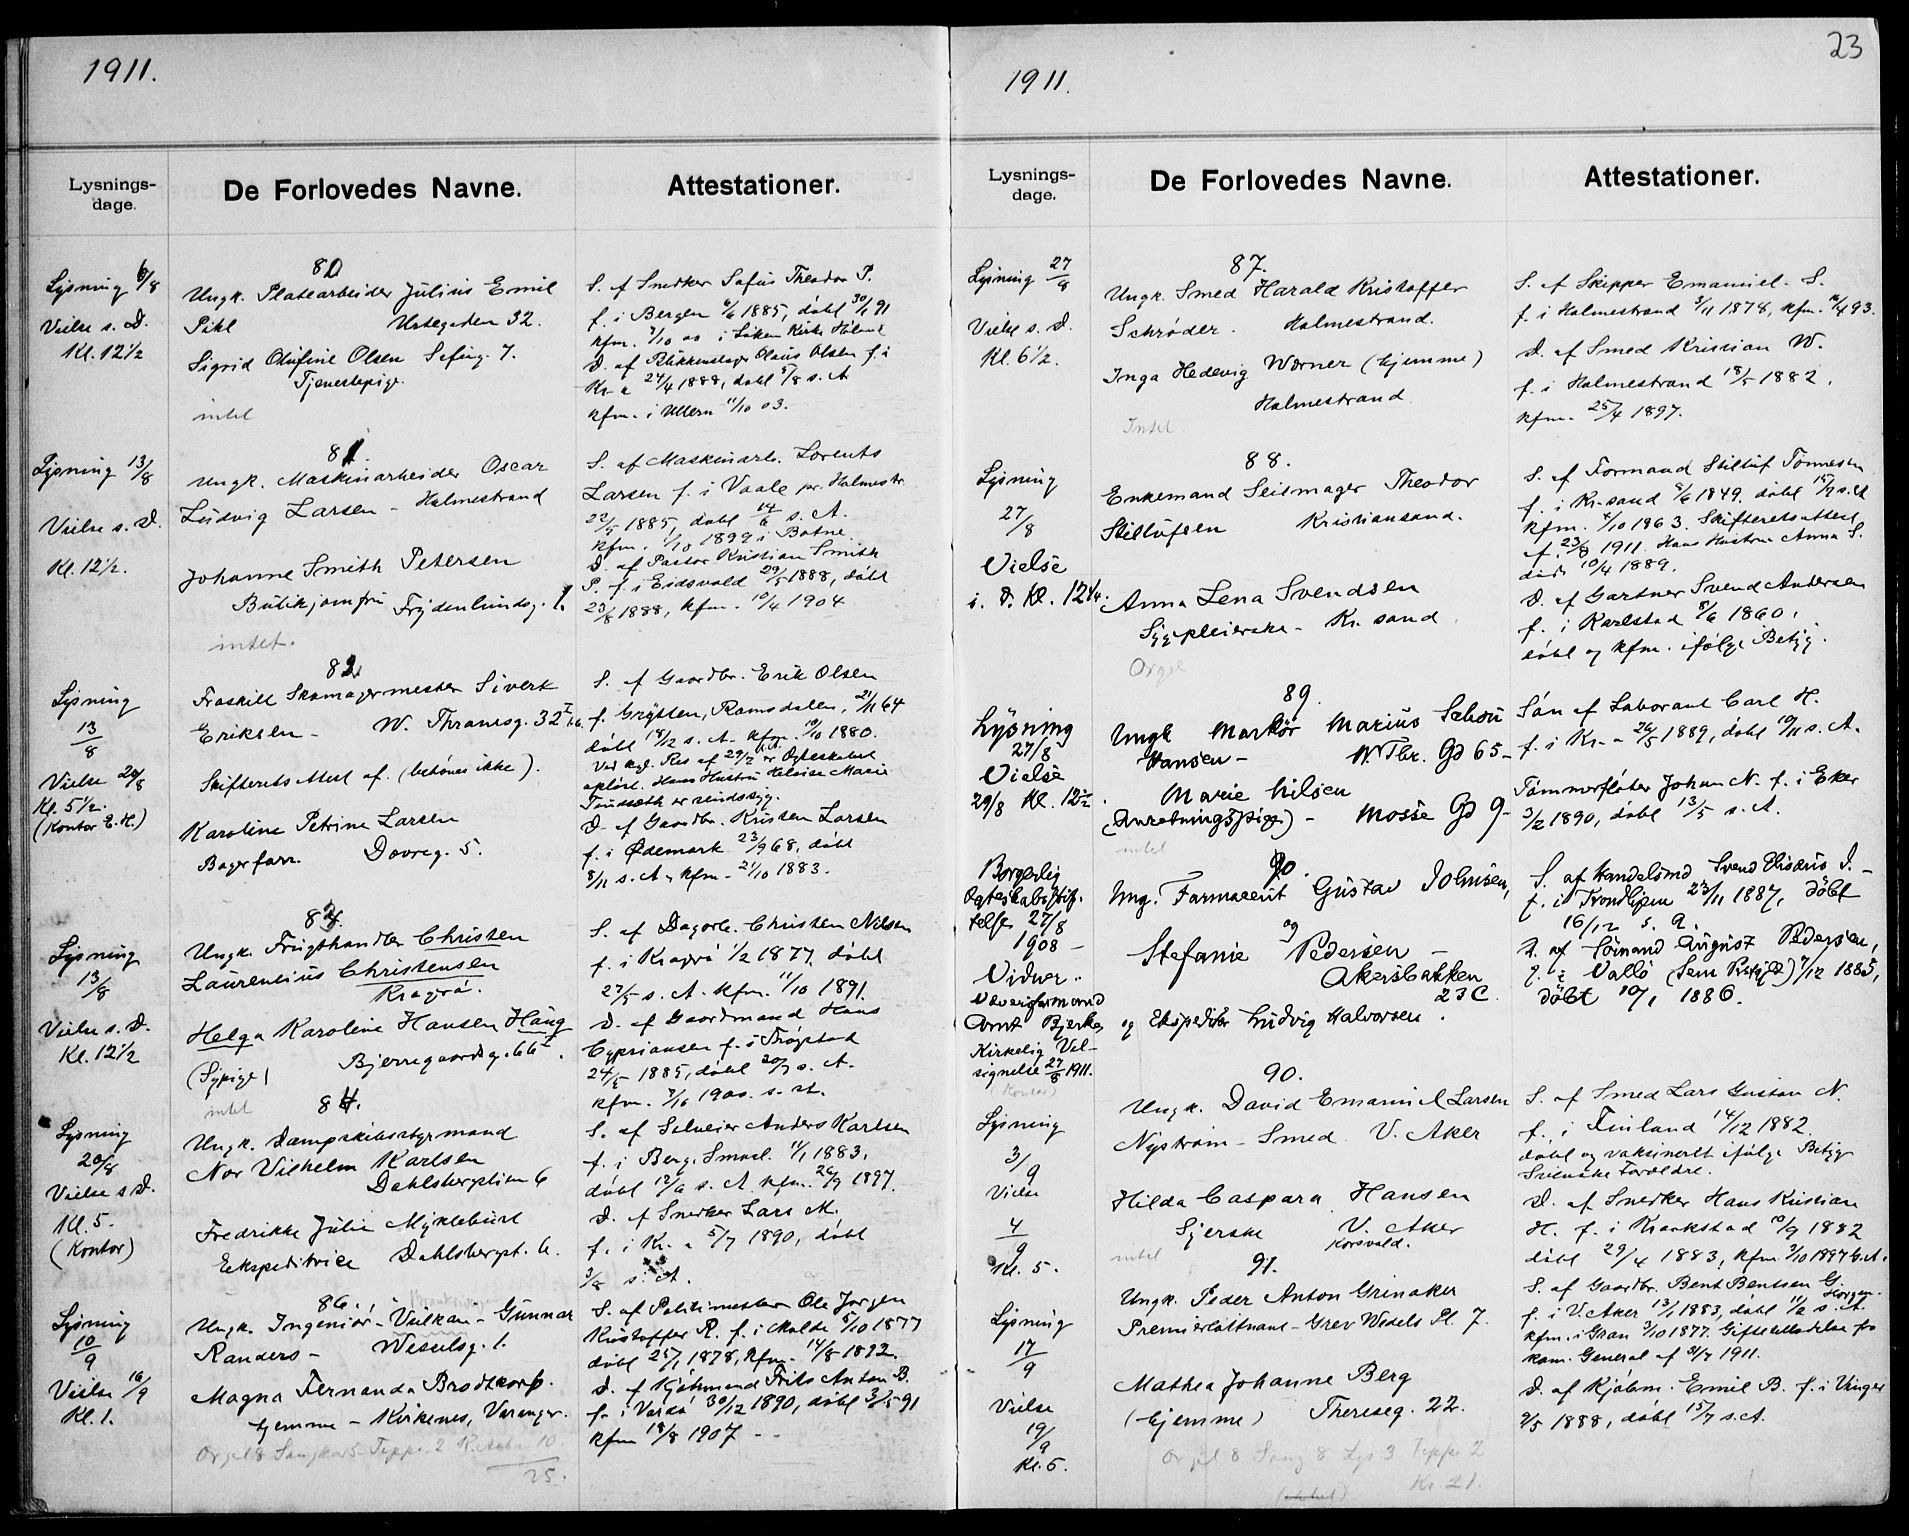 1911.
Lysnings-
dage.
De Forlovedes Navne.
Attestationer.
Lysning 6/8
Vielse s. D.
Kl. 12 1/2
80
Ungk. Platearbeider Julius Emil
Pihl Urtegaden 32.
Sigrid Olufine Olsen Sefing. 7.
Tjenestepige
intet
S. af Snedker Sofus Theodor P.
f. i Bergen 6/6 1885, døbt 30/ 91
kfm. 7/10 00 i Søken Kirke Høland
D. af Blikkenslager Olaus Olsen f. i
Kr.a 24/4 1888, døbt 5/8 s. A
kfm. i Ullern 11/10 03.
Lysning 13/8
Vielse s. D.
Kl. 12 1/2.
81.
Ungk. Maskinarbeider Oscar
Ludvig Larsen - Holmestrand
Johanne Smith Petersen
Butikjomfru Frydenlundsg. 1.
intet.
S. af Maskinarb. Lorents
Larsen f. i Vaale pr. Holmestr.
22/5 1885, døbt 14/6 s. A.
kfm. 1/10 1899 i Botne
D. af Pastor Kristian Smith
P. f. i Eidsvold 29/5 1888, døbt
23/8 1888, kfm. 10/4 1904
Lysning
13/8
Vielse 20/8
Kl. 5 1/2.
(Kontor E. H.)
82
Fraskilt Skomagermester Sivert
Eriksen - W. Thranesg. 32 I
Skifteretsattest af. (behøves ikke).
Karoline Petrine Larsen
Bagerforr. Dovreg. 5.
S. af Gaardbr. Erik Olsen
f. Grytten, Romsdalen, 21/11 64
døbt 18/12 s. A. kfm. 10/10 1880.
Ved kgl. Res af 29/2 er Ægteskabet
opløst. Hans Hustru Heloise Marie
D. af Gaardbr. Kristen Larsen
f. i Ødemark 23/9 68, døbt
8/11 s. A. kfm. 21/10 1883.
Lysning
13/8
Vielse s. D.
Kl. 12 1/2
83.
Ungk. Frugthandler Christen
Laurentius Christensen
Kragerø.
Helga Karoline Hansen Haug
(Sypige) Bjerregaardsg. 66 I.
intet
S. af Dagarb. Christen Nilsen
f. i Kragerø 1/2 1877, døbt
27/5 s. A. kfm. 11/10 1891.
D. af Gaardmand Hans
Cypriansen f. i Trøgstad
24/5 1885, døbt 20/7 s. A.
kfm. 7/10 1900 s. st.
Lysning
20/8
Vielse s. D.
Kl. 5.
(Kontor)
84.
Ungk. Dampskibsstyrmand
Nor Vilhelm Karlsen
Dahlsbergstien 6
Fredrikke Julie Myklebust
Ekspeditrice Dahlsbergst. 6.
S. af Selveier Anders Karlsen
f. i Berg. Smaal. 11/1 1883,
døbt 12/6 s. A. kfm. 26/9 1897.
D. af Snedker Lars M.
f. i Kr.a 5/7 1890, døbt
3/8 s. A.
Lysning
10/9
Vielse 16/9
Kl. 1.
86.
Ungk. Ingeniør - Veilkan - Gunnar
Randers - Wesselsg. 1.
Magna Fernanda Brodtkorb.
hjemme - Kirkenes, Varanger.
Orgel 8 Sangkor 5 Teppe 2 10
25.
S. af Politimester Ole Jørgen
Kristoffer R. f. i Molde 5/10 1877
døbt 25/1 1878, kfm. 14/8 1892.
D. af Kjøbmand Frits Anton B.
f. i Vardø 30/12 1890, døbt 3/5 91
kfm 18/8 1907 - -
23
1911.
Lysnings-
dage.
De Forlovedes Navne.
Attestationer.
Lysning 27/8
Vielse s. D.
Kl. 6 1/2.
87.
Ungk. Smed Harald Kristoffer
Schrøder. Holmestrand.
Inga Hedevig Wærner (hjemme)
Holmestrand
Intet
S. af Skipper Emanuel S.
f. i Holmestrand 3/11 1878, kfm. 16/4 93.
D. af Smed Kristian W.
f. i Holmestrand 18/5 1882.
kfm. 25/4 1897.
Lysning
27/8
Vielse
s. D. Kl. 12 1/4.
88.
Enkemand Seilmager Theodor
Stillufsen Kristiansand.
Anna Lena Svendsen
Sygepleierske - Kr. sand.
Orgel
S. af Formand Stilluf Tønnesen
f. i Kr. sand 8/6 1849. døbt 15/7 s. A
kfm. 4/10 1863. Skifteretsattest
af. 23/8 1911. Hans Hustru Anna S.
død 10/4 1889.
D. af Gartner Svend Andersen
f. i Karlstad 8/6 1860.
døbt og kfm. ifølge Betyg.
Lysning
27/8
Vielse
29/8 Kl. 12 1/2.
89.
Ungk Markør Marius Schou
Hansen - W. Thr. Gd 65 -
Marie Nilsen
(Anretningspige) - Mosse Gd 9 -
intet
Søn af Laborant Carl H.
f. i Kr.a 26/5 1889, døbt 10/11 s. A.
Tømmerfløter Johan N. f. i Eker
3/2 1890, døbt 13/5 s. A.
Borgerlig
Ægteskabsstif-
telse 27/8
1908 -
Vidner:
Væverformand
Arnt Bjerke
og Ekspeditør Ludvig Halvorsen.
Kirkelig Vel-
signelse 27/8 1911.
(Kontor)
90.
Ung. Farmaceut Gustav Johnsen,
og
Stefanie Pedersen -
Akersbakken
23 C
S. af Handelsmd Svend Elisæus J. -
f. i Trondhjem 23/11 1887, døbt
16/12 s. A.
D. af Sømand August Pedersen,
f. i Vallø (Sem Prstgjd) 7/12 1885,
døbt 10/1 1886.
Lysning
3/9
Vielse
4/9
Kl. 5.
90.
Ungk. David Emanuel Larsen
Nystrøm - Smed V. Aker
Hilda Caspara Hansen
Syerske V. Aker
Korsvold.
intet
S. af Smed Lars Gustav N.
f. i Finland 14/12 1882
døbt og vaksineret ifølge Betyg
Svenske Forældre.
D. af Snedker Hans Kristian
H. f. i Kraakstad 10/9 1882
døbt 29/4 1883, kfm 3/10 1897 V. A.
Lysning
17/9
Vielse
19/9
Kl. 5.
91.
Ungk. Peder Anton Grinaker
Premierløitnant - Grev Wedels Pl. 7.
Mathea Johanne Berg
(hjemme) Thereseg. 22.
Orgel 8 Sang 8 Lys 3 Teppe 2
Kr. 21.
S. af Gaardbr. Bent Bentsen G.
f. i V. Aker 13/1 1883, døbt 11/2 s. A.
kfm. i Gran 3/10 1877. Giftetilladelse fra
kom. General af 31/7 1911.
D. af Kjøbm. Emil B. f. i Vinger
9/5 1888, døbt 15/7 s. A.